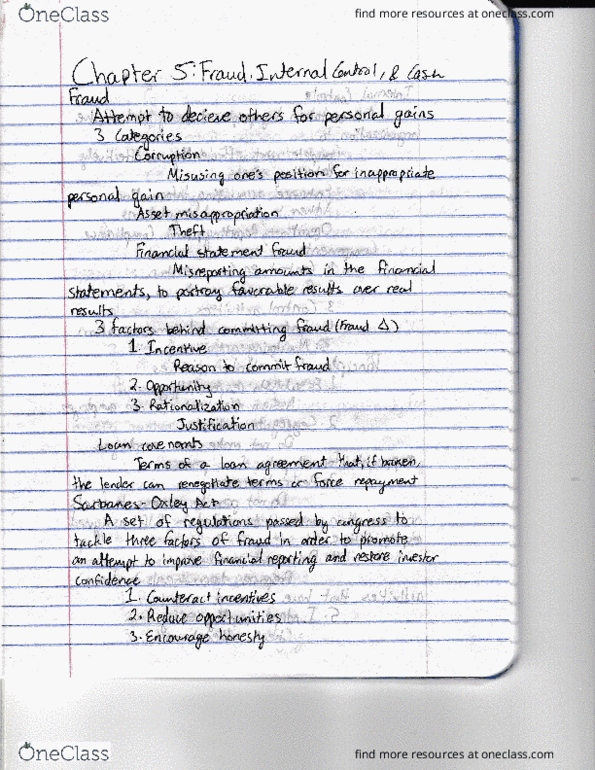 OneClass
find more resources at oneclass.com
Chapter 5: Fraud, Internal Control, & Cash
Fraud
Attempt to decieve others for personal gains
3 Categories
Corruption
Misusing one's position for inappropriate
personal gain
Asset misappropriation
Theft
Financial statement fraud
Misreporting amounts in the financial
statements, to portray favorable results over real
results
3 factors behind committing fraud (Fraud Δ)
1. Incentive
Reason to commit fraud
2. Opportunity
3. Rationalization
Justification
Loan covenants
Terms of a loan agreement that, if broken,
the lender can renegotiate terms or force repayment
Sarbanes-Oxley Act
A set of regulations passed by congress to
tackle three factors of fraud in order to promote
an attempt to improve financial reporting and restore investor
confidence
1. Counteract incentives
2. Reduce opportunities
3. Encourage honesty
OneClass
find more resources at oneclass.com